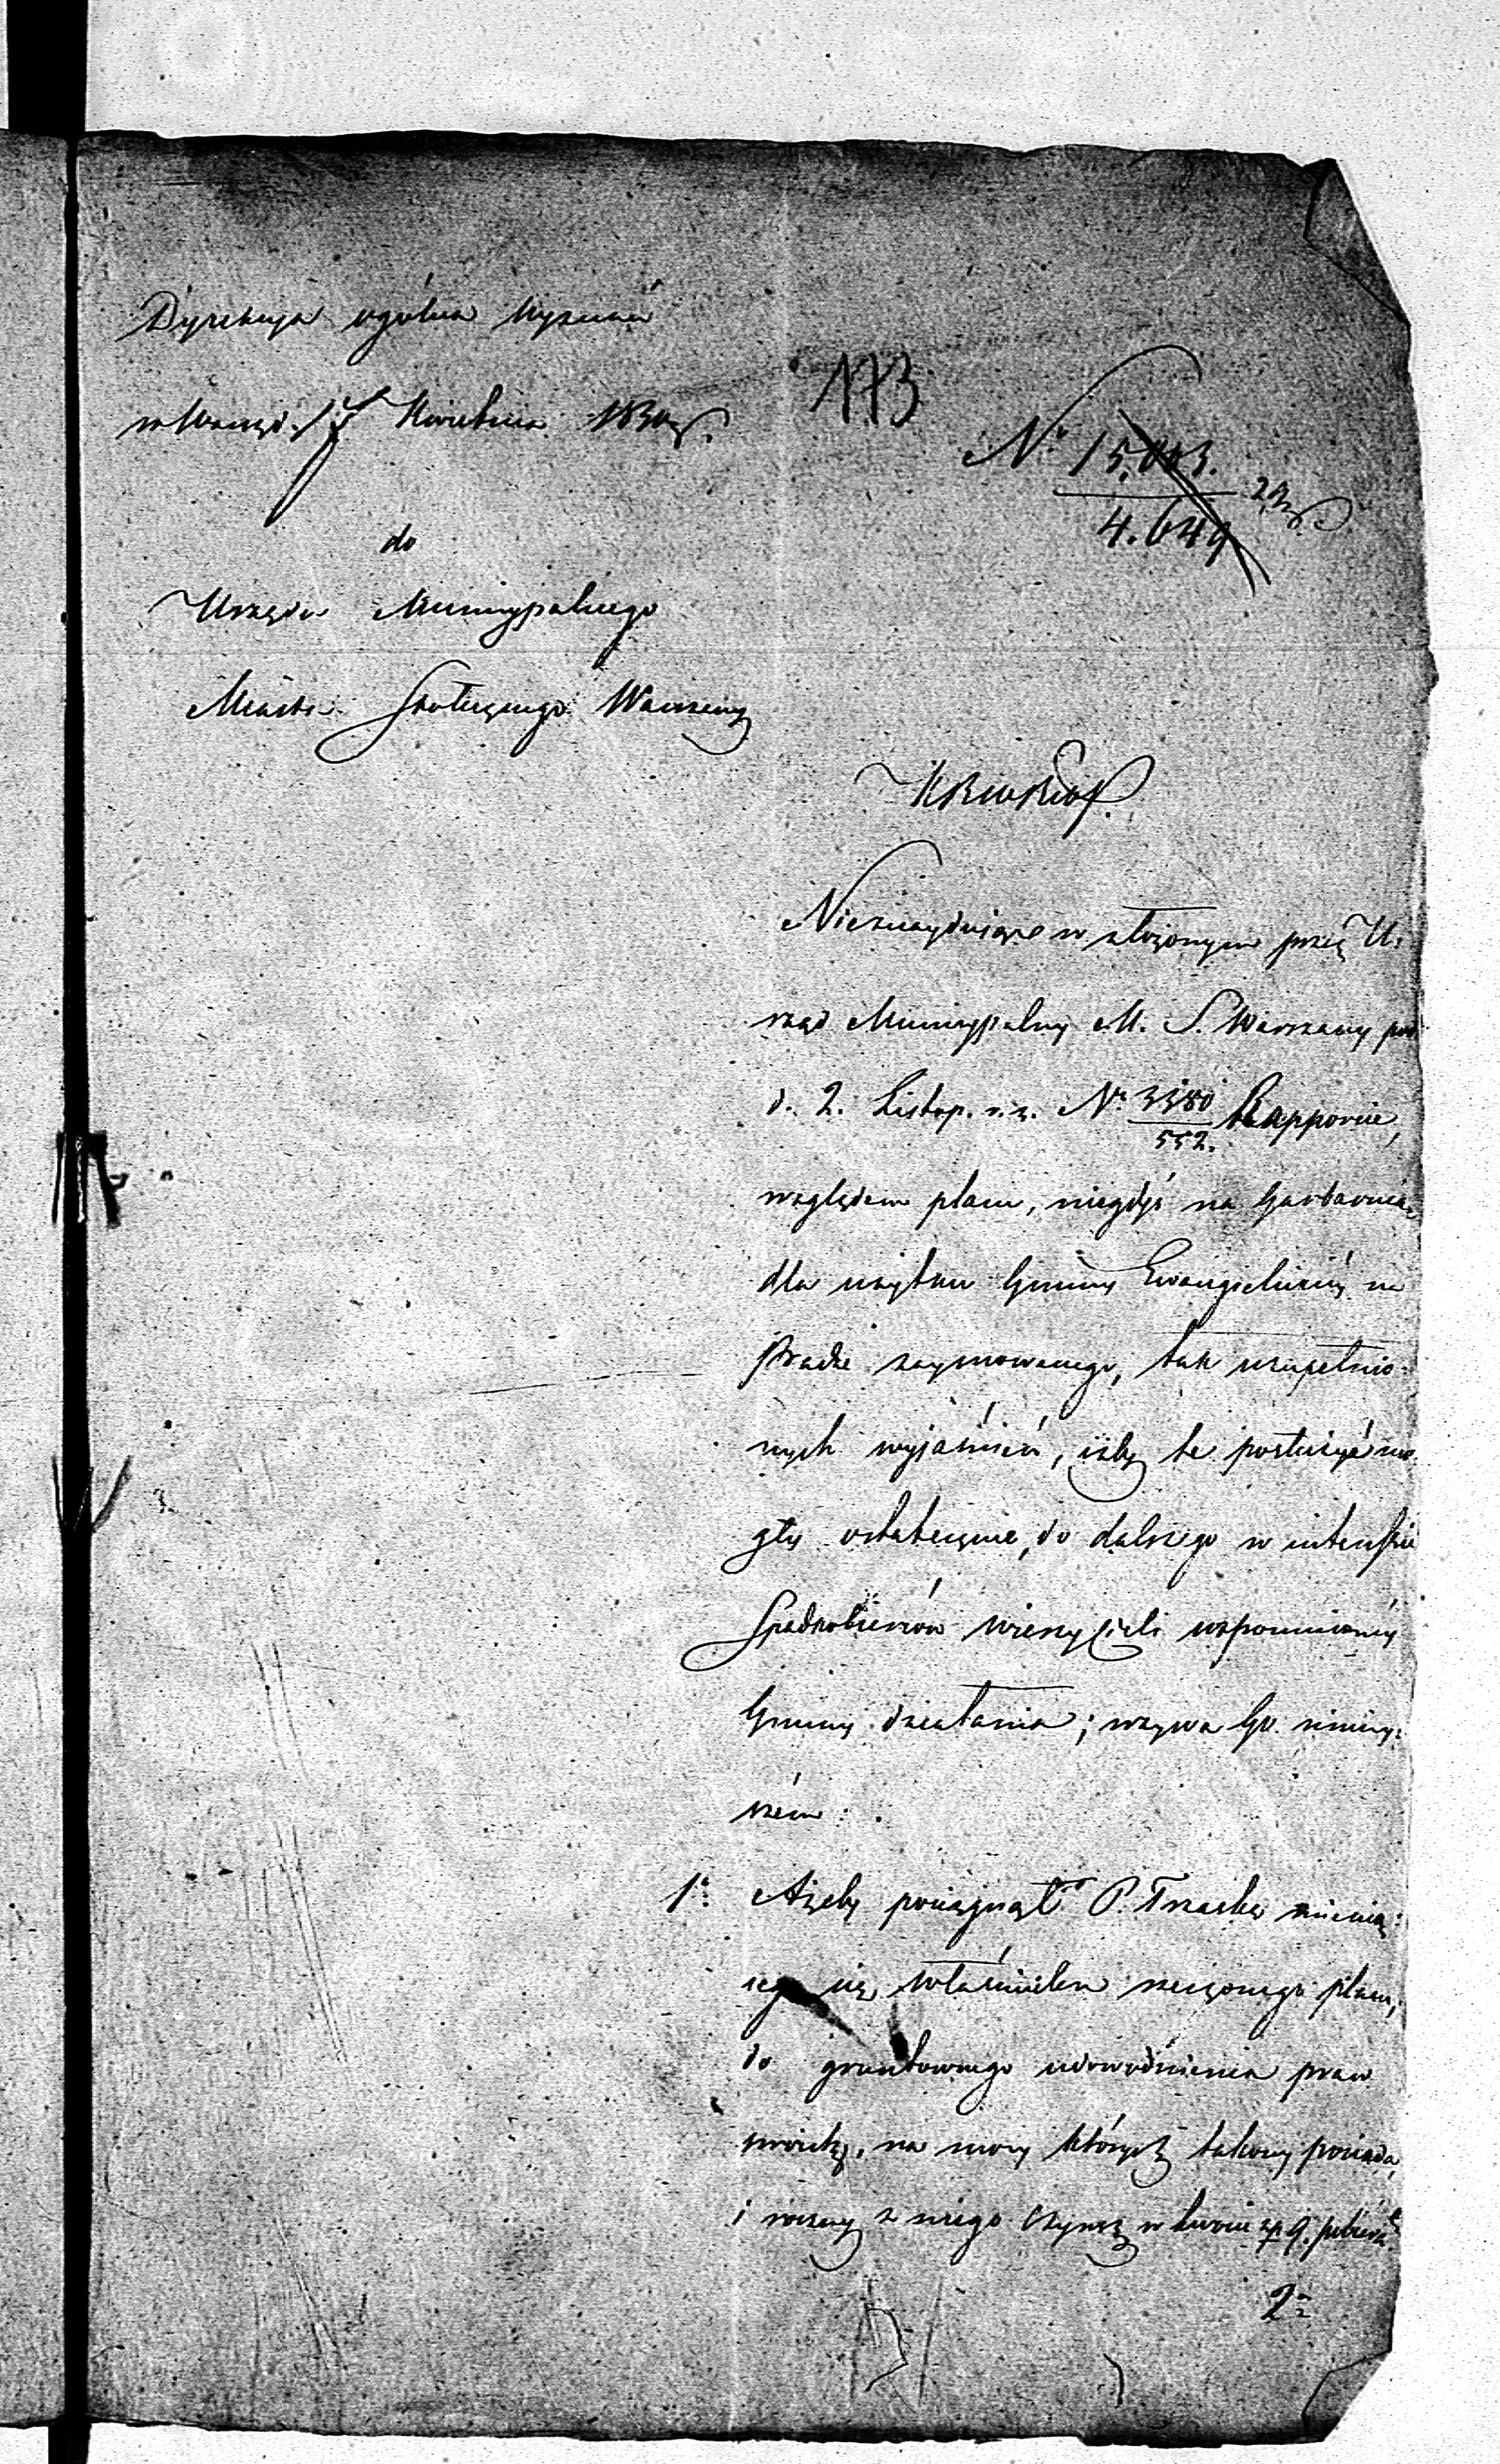 Dyrekcya ogólna
w Warsz. 17 Kwietnia 1830 r.
173
N° 15,003.
4.649
do
Urzędu Municypalnego
Miasta Stołecznego Warszawy
KRWRiOP.
Nieznaydując w złożonym przez U-
rząd Municypalny M. S. Warszawy pod
d. 2. Listop. r. z. N° 3380/552. Rapporcie,
względem placu, niegdyś na Garbarnią
dla użytku Gminy Ewangielickiéy na
Pradze zaymowanego, tak uzupełnio-
nych wyjaśnień, iżby te posłużyć mo-
gły ostatecznie, do dalszego w interessie
Spadkobierców wierzycieli wspomnionéy
Gminy działania; wzywa go niniey-
szém:
1° Ażeby pociągnął P. mienią-
cego się właścicielem rzeczonego placu,
do gruntownego udowodnienia praw
swoich, na mocy których takowy posiada,
i roczny z niego czynsz w kwocie zp 9. pobierał
2°